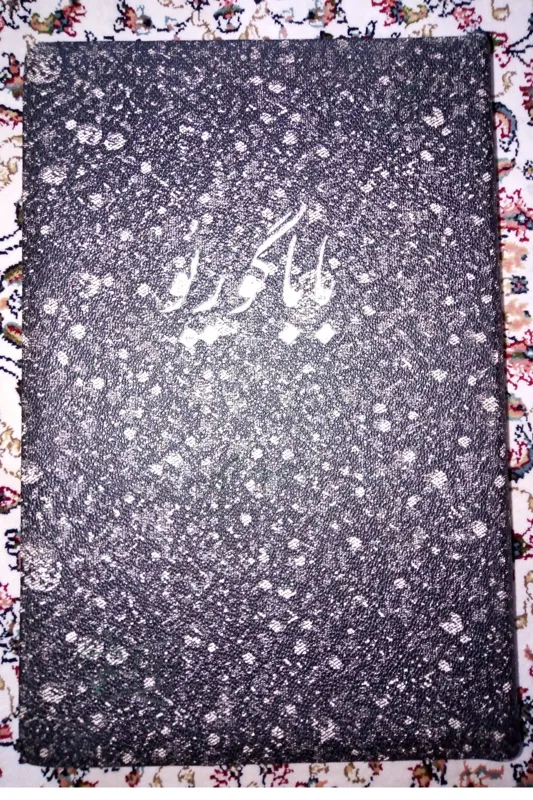 بابا گوریو